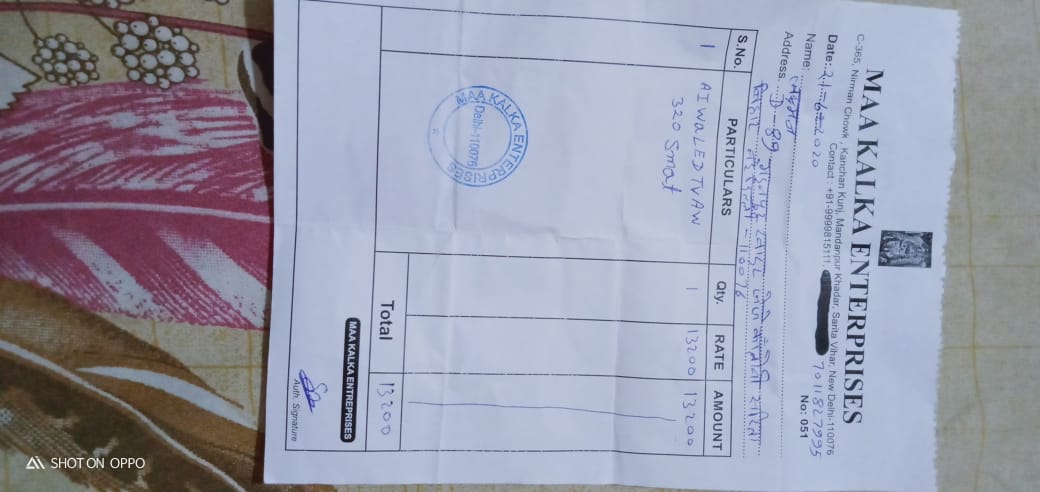 MAA KALKA ENTERPRISES
C-365, Nirman Chowk, Kanchan Kunj, Mandanpur Khadar, Sarita Vihar, New Delhi-110076
Contact : +91-9999815111, 7011827995
Date: 21-6-2020
No: 051
Name:
Address. D-89
110076
S.No. PARTICULARS Qty. RATE AMOUNT
1 AIWa LED TV AW 1 13200 13200
320 Smat
MAA KALKA ENTERPRISES
Delhi-110076
Total 13200
MAA KALKA ENTREPRISES
Auth. Signature
SHOT ON OPPO